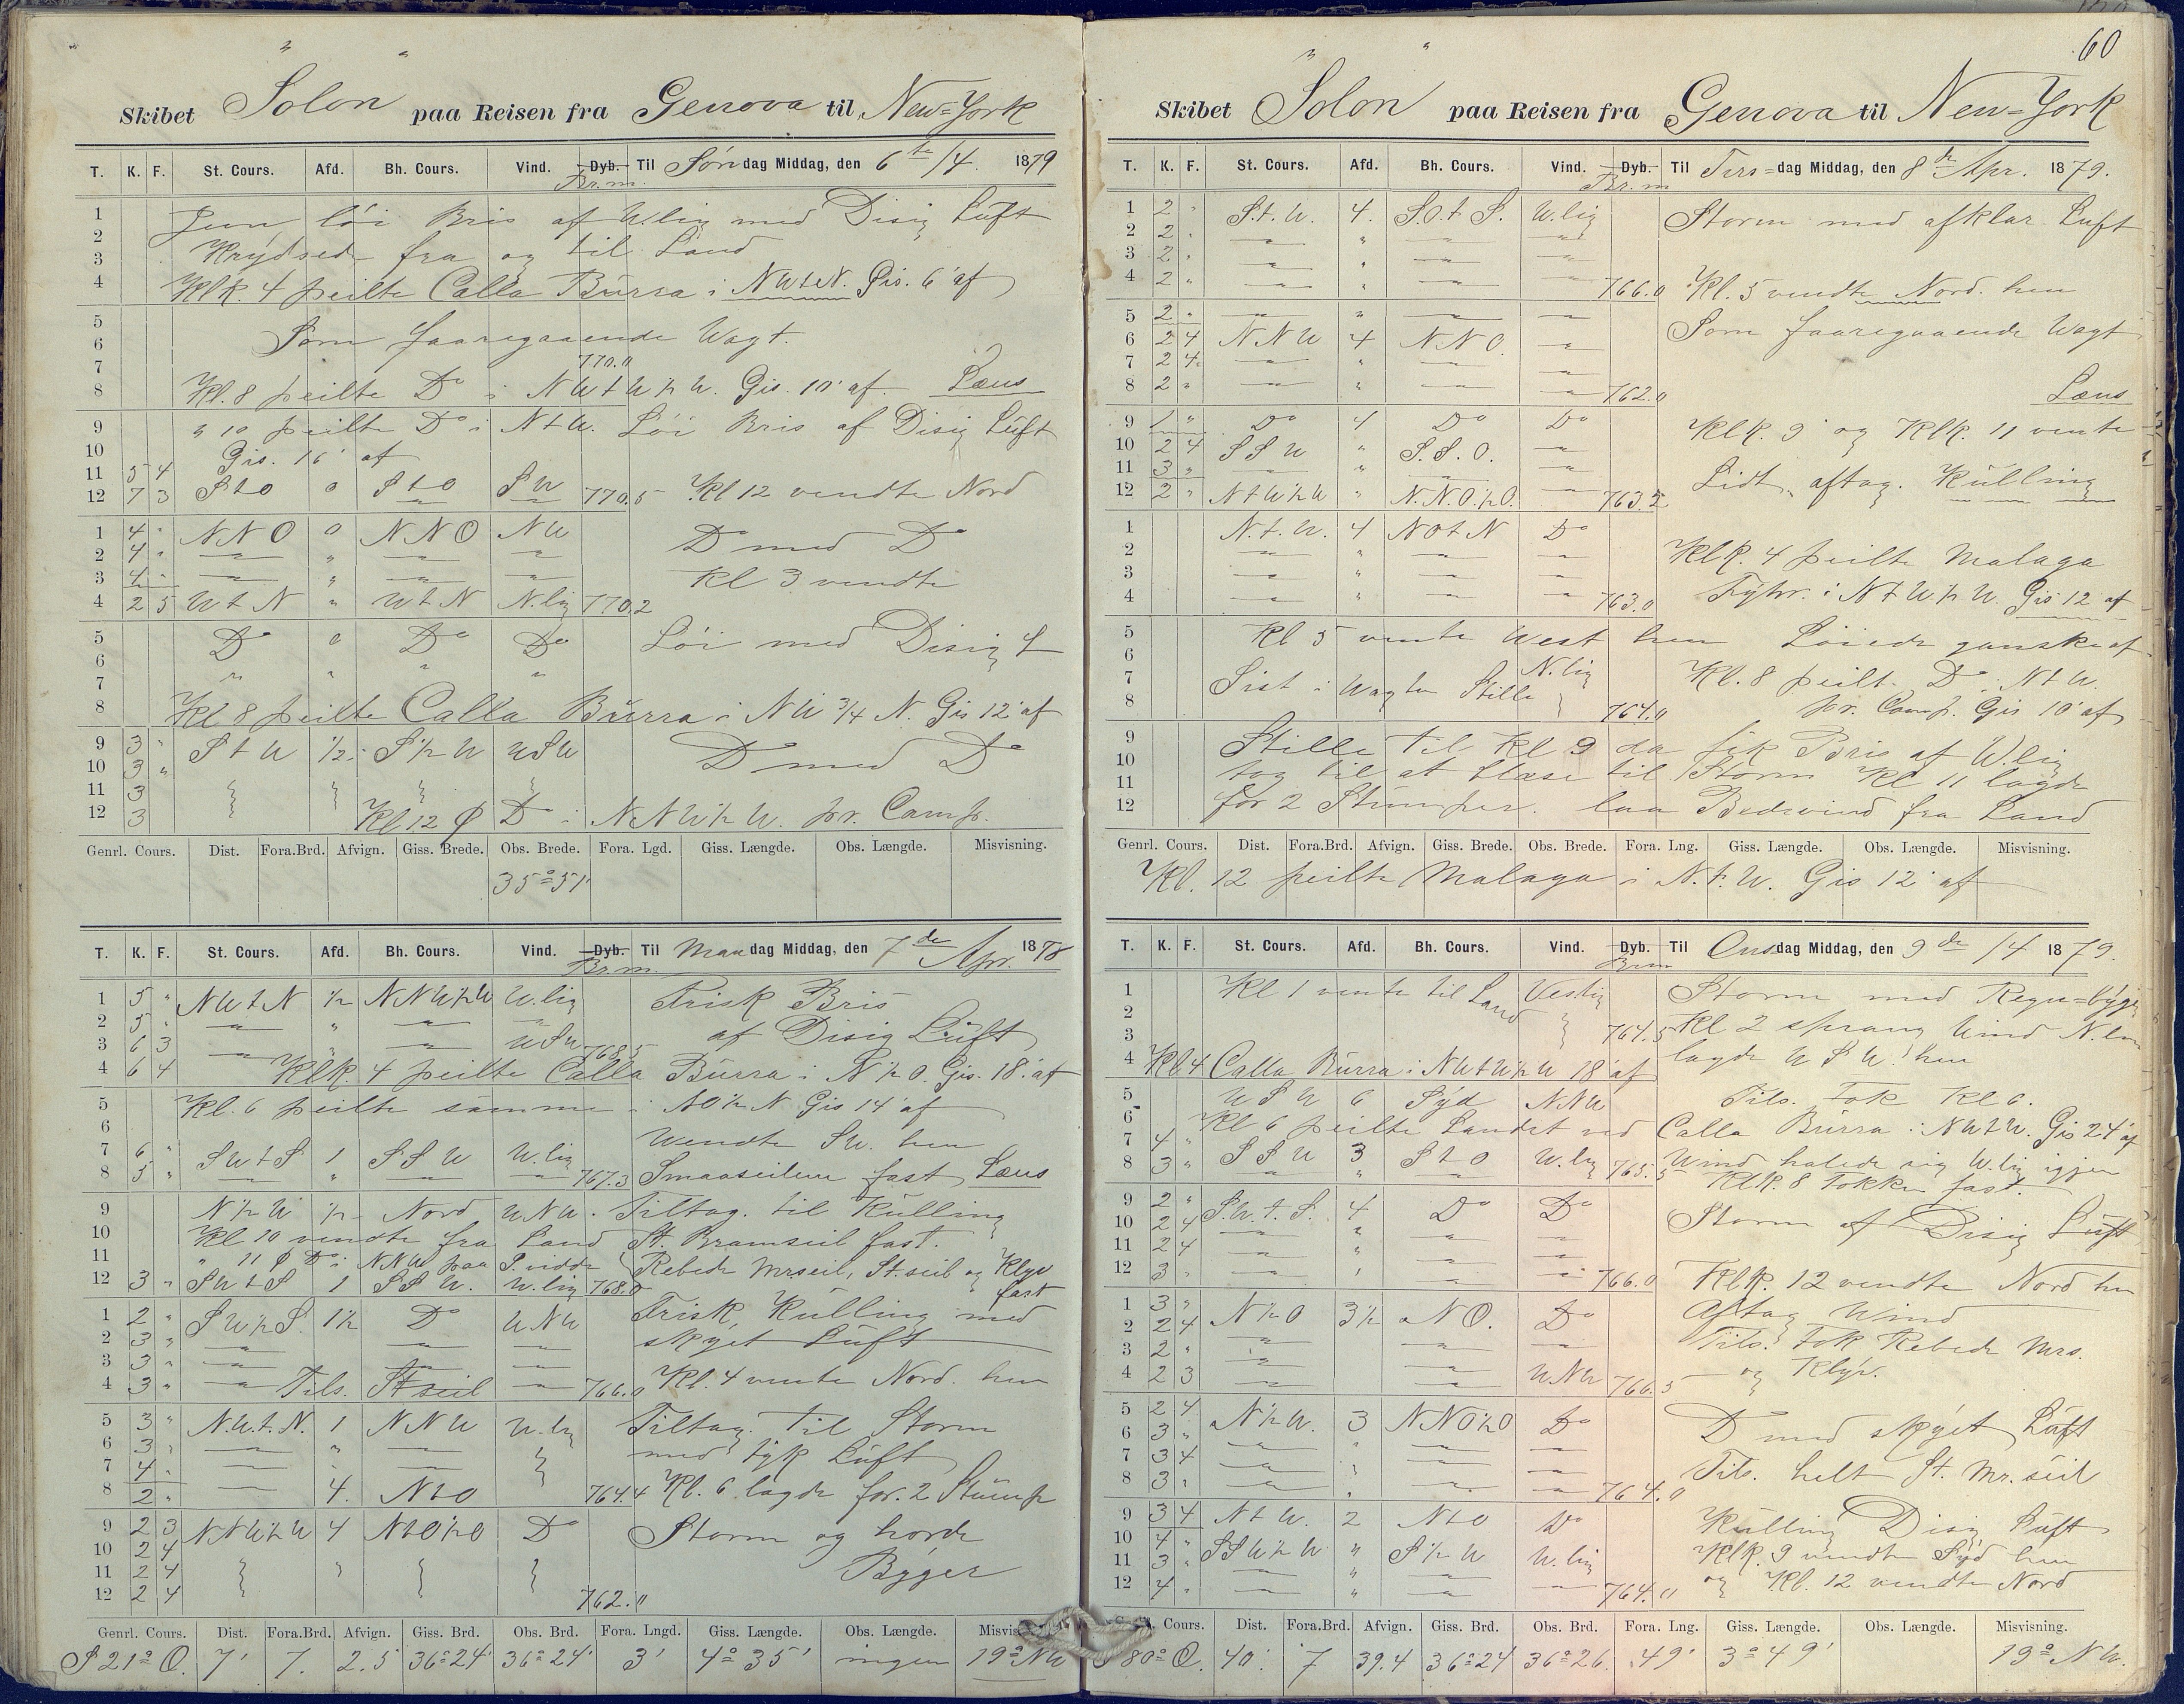 Skibet "Solon" paa Reisen fra Genova til New=York
T. K. F. St. Cours. Afd. Bh. Cours. Vind. Dyb. Br.m. Til Søndag Middag, den 6te /4 1879
1 Jevn løi Bris af W.lig med Disig Luft
2
3 Krydsede fra og til Land
4 Klk. 4 peilte Calla Burra i NWtN. Gis. 6' af
5
6 Som faaregaaende Vagt.
7 770.0
8 Kl. 8 peilte Do i NWtW½W. Gis. 10' af. Læns
9 " 10 peilte Do i NtW. Løi Bris af Disig Luft
10 Gis. 16' af
11 5 4
12 7 3 StO 0 StO SW 770.5 Kl 12 vendte Nord
1 4 " NNO 0 NNO NW Do med Do
2 4 " " " " "
3 4 " " " " " Kl 3 vendte
4 2 5 WtN " WtN N.lig 770.2
5 Do 0 Do Do Løi med Disig L
6 " " " "
7
8 Kl 8 peilte Calla Burra i NW ¾ N. Gis 12' af
9 3 " StW ½ S½W WSW Do med Do
10 3 "
11 3
12 3 Kl 12 Do i NNW½W. pr. Comp.
Genrl. Cours. Dist. Fora.Brd. Afvign. Giss. Brede. Obs. Brede. Fora. Lgd. Giss. Længde. Obs. Længde. Misvisning.
35°51'
T. K. F. St. Cours. Afd. Bh. Cours. Vind. Dyb. Br.m. Til Mandag Middag, den 7de Apr. 1878
1 5 " NWtN ½ NNW½W W.lig Frisk Bris
2 5 " " " " " af Disig Luft
3 6 3 " " " WSW 768.5
4 6 4 Klk. 4 peilte Calla Burra i N½O. Gis. 18' af
5 Kl. 6 peilte samme i NO½N Gis 14' af
6
7 6 " SWtS 1 SSW W.lig Wendte SW. hen
8 5 " " " " " 767.3 Smaaseilene fast Læns
9 N½W ½ Nord WNW. Tiltag. til Kulling
10 Kl 10 vendte fra Land St. Bramseil fast.
11 " 11 Do i NNW paa S. vidde Rebede Mrseil, St.seil og Klyv
12 3 " SWtS 1 SSW. W.lig 768.0 fast
1 2 " SW½S. 1½ Do WNW Frisk Kulling med
2 3 " " " " skyet Luft
3 3 " " " "
4 3 " " Tils. St seil " 766.0 Kl. 4 vente Nord. hen
5 3 " N.W.t.N. 1 NNW W.lig Tiltag. til Storm
6 3 " " " " med tyk Luft
7 4 " " " "
8 2 " " 4. NtO 764.4 Kl. 6 lagde for. 2 Stump
9 2 3 NNW½W 4 NtO½O Do Storm og horde
10 2 4 Byger
11 2 4
12 2 4 762.0
Genrl. Cours. Dist. Fora.Brd. Afvign. Giss. Brd. Obs. Brd. Fora. Lngd. Giss. Længde. Obs. Længde. Misvis
S 21° O. 7' 7. 2.5 36°24' 36°24' 3' 4°35' ingen 19° NW
60
Skibet "Solon" paa Reisen fra Genova til New=York
T. K. F. St. Cours. Afd. Bh. Cours. Vind. Dyb. Br.m Til Tirs=dag Middag, den 8de Apr. 1879.
1 2 " S.t.W. 4. S.O.t.S. W.lig Storm med afklar. Luft
2 2 " " " " "
3 2 " " " " "
4 2 " " " " " 766.0 Kl. 5 vendte Nord. hen
5 2 " " " " "
6 2 4 NNW 4 NNO. " Som faaregaaende Vagt
7 2 4 " " " "
8 2 " " " " " 762.0 Læns
9 1 " Do 4 Do Do Klk. 9 og Klk. 11 vente
10 2 4 SSW " S.S.O. "
11 3 " " " " " Lidt aftag. Kulling
12 2 " NtW½W " N.N.O.½O. " 763.2
1 N.t.W. 4 NOtN Do
2 " " " " Klk. 4 peilte Malaga
3 " " " "
4 " " " " 763.0 Fyhr. i NtW½W. Gis 12' af
5 Kl 5 vente West hen Løiede ganske af.
6
7 Sist i Vagten Stille N.lig Kl. 8 peilt. Do i NtW.
8 764.0 pr. Comp. Gis 10' af
9 Stille til Kl 9 da fik Bris af W.lig
10 tog til at blæse til Storm Kl 11 lagde
11
12 for 2 Stumper. laa Bedevind fra Land
Genrl. Cours. Dist. Fora.Brd. Afvign. Giss. Brede. Obs. Brede. Fora. Lng. Giss. Længde. Obs. Længde. Misvisning.
Kl. 12 peilte Malaga i N.t.W. Gis 12' af
T. K. F. St. Cours. Afd. Bh. Cours. Vind. Dyb. Br.m Til Onsdag Middag, den 9de /4 1879.
1 Kl 1 vente til Land Vestlig Storm med Regn=byger
2
3 764.5 Kl 2 sprang Wind N.
4 Kl 4 Calla Burra i NWtW½W 18' af lagde WSW hen
5 WSW 6 Syd NNW Tils. Fok Kl 6.
6 Kl 6 peilte Landet ved Calla Burra i NWtW. Gis 24' af
7 4 "
8 3 " SSW 3 StO W.lig 765.5 Wind halede sig W.lig igjen
Klk. 8 Fokken fast.
9 2 " S.W.t.S. 4 Do Do Storm af Disig Luft
10 2 4 " " " "
11 2 4 " " " "
12 3 " " " " " 766.0 Klk. 12 vendte Nord hen
1 3 " N½O 3½ NO. Do Aftag Wind
2 2 4 " " " Tils. Fok Rebede Mrs.
3 2 " " " "
4 2 3 " " WNW 766.5 og Klyv.
5 2 4 N½W. 3 NNO½O Do Do med skyet Luft
6 3 " " " " "
7 3 4 " " " " Tils. helt St. Mr. seil
8 3 " " " " " 764.0
9 3 4 NtW. 2 NtO Do Kulling Disig Luft
10 4 " SSW½W " S½W W.lig Klk. 9 vendte Syd hen
11 3 " " " " og Kl. 12 vendte Nord
12 4 " " " " " 764.0
Cours. Dist. Fora.Brd. Afvign. Giss. Brd. Obs. Brd. Fora. Lng. Giss. Længde. Obs. Længde. Misvisning.
S 80° O. 40' 7 39.4 36°24 36°26. 49' 3°49' 19° NW.